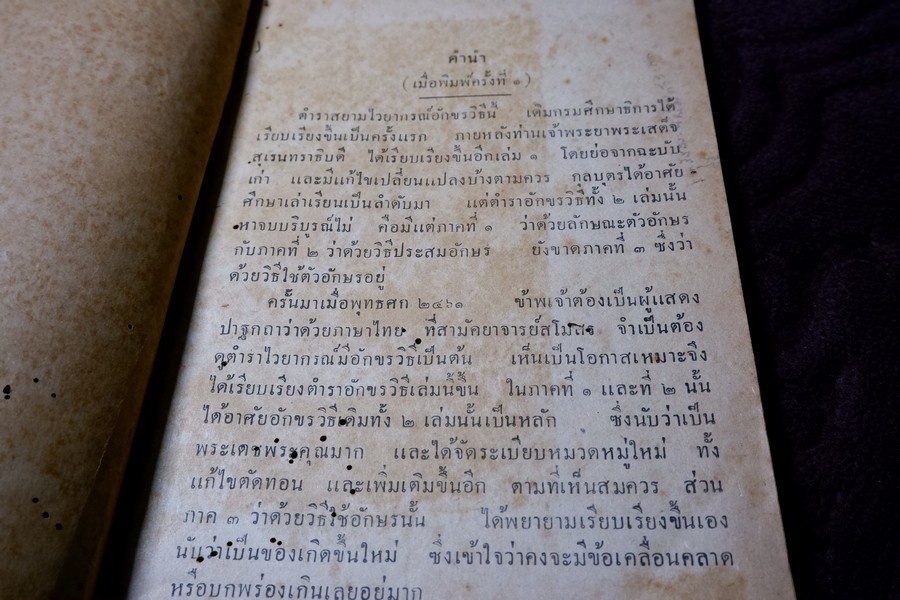 คำนำ
(เมื่อพิมพ์ครั้งที่ ๑)
ตำราสยามไวยากรณ์อักขรวิธีนี้ เดิมกรมศึกษาธิการได้
เรียบเรียงขึ้นเป็นครั้งแรก ภายหลังท่านเจ้าพระยาพระเสด็จ
สุเรนทราธิบดี ได้เรียบเรียงขึ้นอีกเล่ม ๑ โดยย่อจากฉะบับ
เก่า และมีแก้ไขเปลี่ยนแปลงบ้างตามควร กุลบุตรได้อาศัย
ศึกษาเล่าเรียนเป็นลำดับมา แต่ตำราอักขรวิธีทั้ง ๒ เล่มนั้น
หาจบบริบูรณ์ไม่ คือมีแต่ภาคที่ ๑ ว่าด้วยลักษณะตัวอักษร
กับภาคที่ ๒ ว่าด้วยวิธีประสมอักษร ยังขาดภาคที่ ๓ ซึ่งว่า
ด้วยวิธีใช้ตัวอักษรอยู่
ครั้นมาเมื่อพุทธศก ๒๔๖๑ ข้าพเจ้าต้องเป็นผู้แสดง
ปาฐกถาว่าด้วยภาษาไทย ที่สามัคยาจารย์สโมสร จำเป็นต้อง
ดูตำราไวยากรณ์มีอักขรวิธีเป็นต้น เห็นเป็นโอกาสเหมาะจึง
ได้เรียบเรียงตำราอักขรวิธีเล่มนี้ขึ้น ในภาคที่ ๑ และที่ ๒ นั้น
ได้อาศัยอักขรวิธีเดิมทั้ง ๒ เล่มนั้นเป็นหลัก ซึ่งนับว่าเป็น
พระเดชพระคุณมาก และได้จัดระเบียบหมวดหมู่ใหม่ ทั้ง
แก้ไขตัดทอน และเพิ่มเติมขึ้นอีก ตามที่เห็นสมควร ส่วน
ภาค ๓ ว่าด้วยวิธีใช้อักษรนั้น ได้พยายามเรียบเรียงขึ้นเอง
นับว่าเป็นของเกิดขึ้นใหม่ ซึ่งเข้าใจว่าคงจะมีข้อเคลื่อนคลาด
หรือบกพร่องเกินเลยอยู่มาก